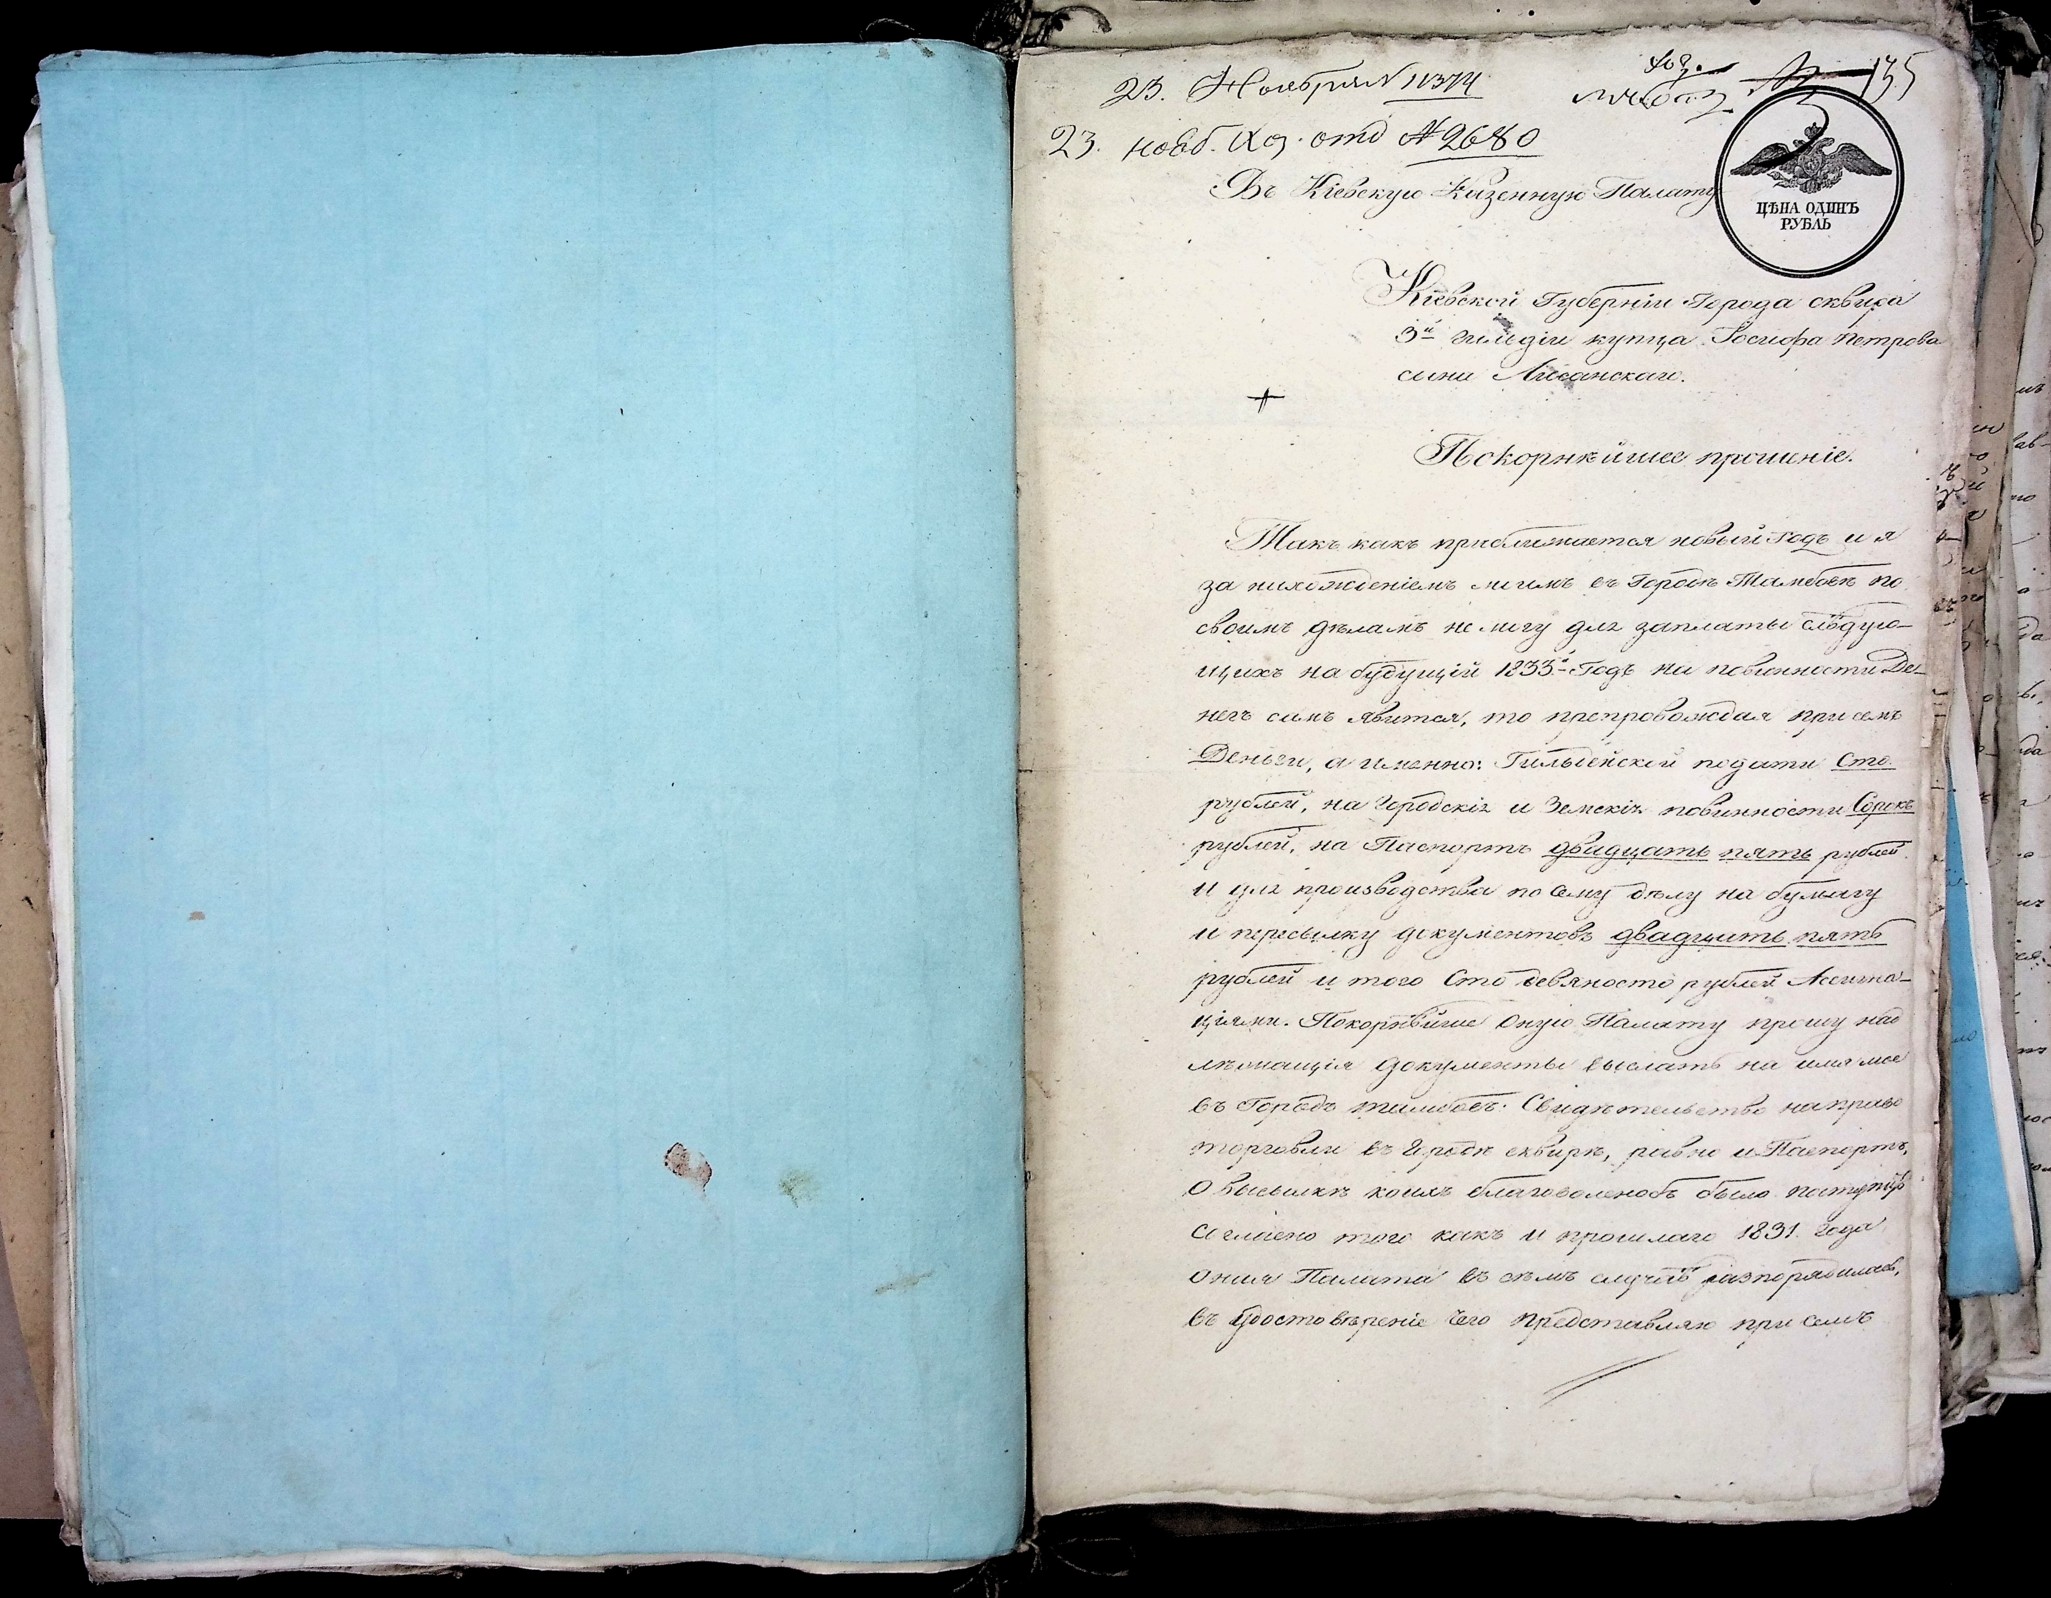 23. Ноября N 11374
23. нояб. Хоз. отд N 2680
135
Въ Кіевскую Казенную Палату
ЦѢНА ОДИНЪ
РУБЛЬ
Кіевской Губерніи Города сквира
3й гильдіи купца Іосифа Петрова
сына Лисанскаго.
Покорнѣйшее прошеніе.
Такъ какъ приближается новый Годъ и я
за нахожденіемъ моимъ въ Городѣ Тамбовѣ по
своимъ дѣламъ не могу для заплаты слѣдую-
щихъ на будущій 1833й Годъ на повинности Де-
негъ самъ явится, то препровождая при семъ
Деньги, а именно: Гильдейской подати Сто
рублей, на Городскія и Земскія повинности Сорокъ
рублей, на Паспортъ двадцать пять рублей
и для производства по сему дѣлу на бумагу
и пересылку документовъ двадцать пять
рублей и того Сто девяносто рублей Ассигна-
ціями. Покорнѣйше Оную Палату прошу над
лѣжащія документы выслать на имя мое
въ Городъ тамбовъ. Свидѣтельство на право
торговли въ Городѣ сквирѣ, равно и Паспортъ,
О высылкѣ коихъ благоволенобъ было поступить
согласно того какъ и прошлаго 1831. года
Оная Палата въ сѣмъ случаѣ разпорядилась,
въ Удостовѣреніе чего представляю при семъ